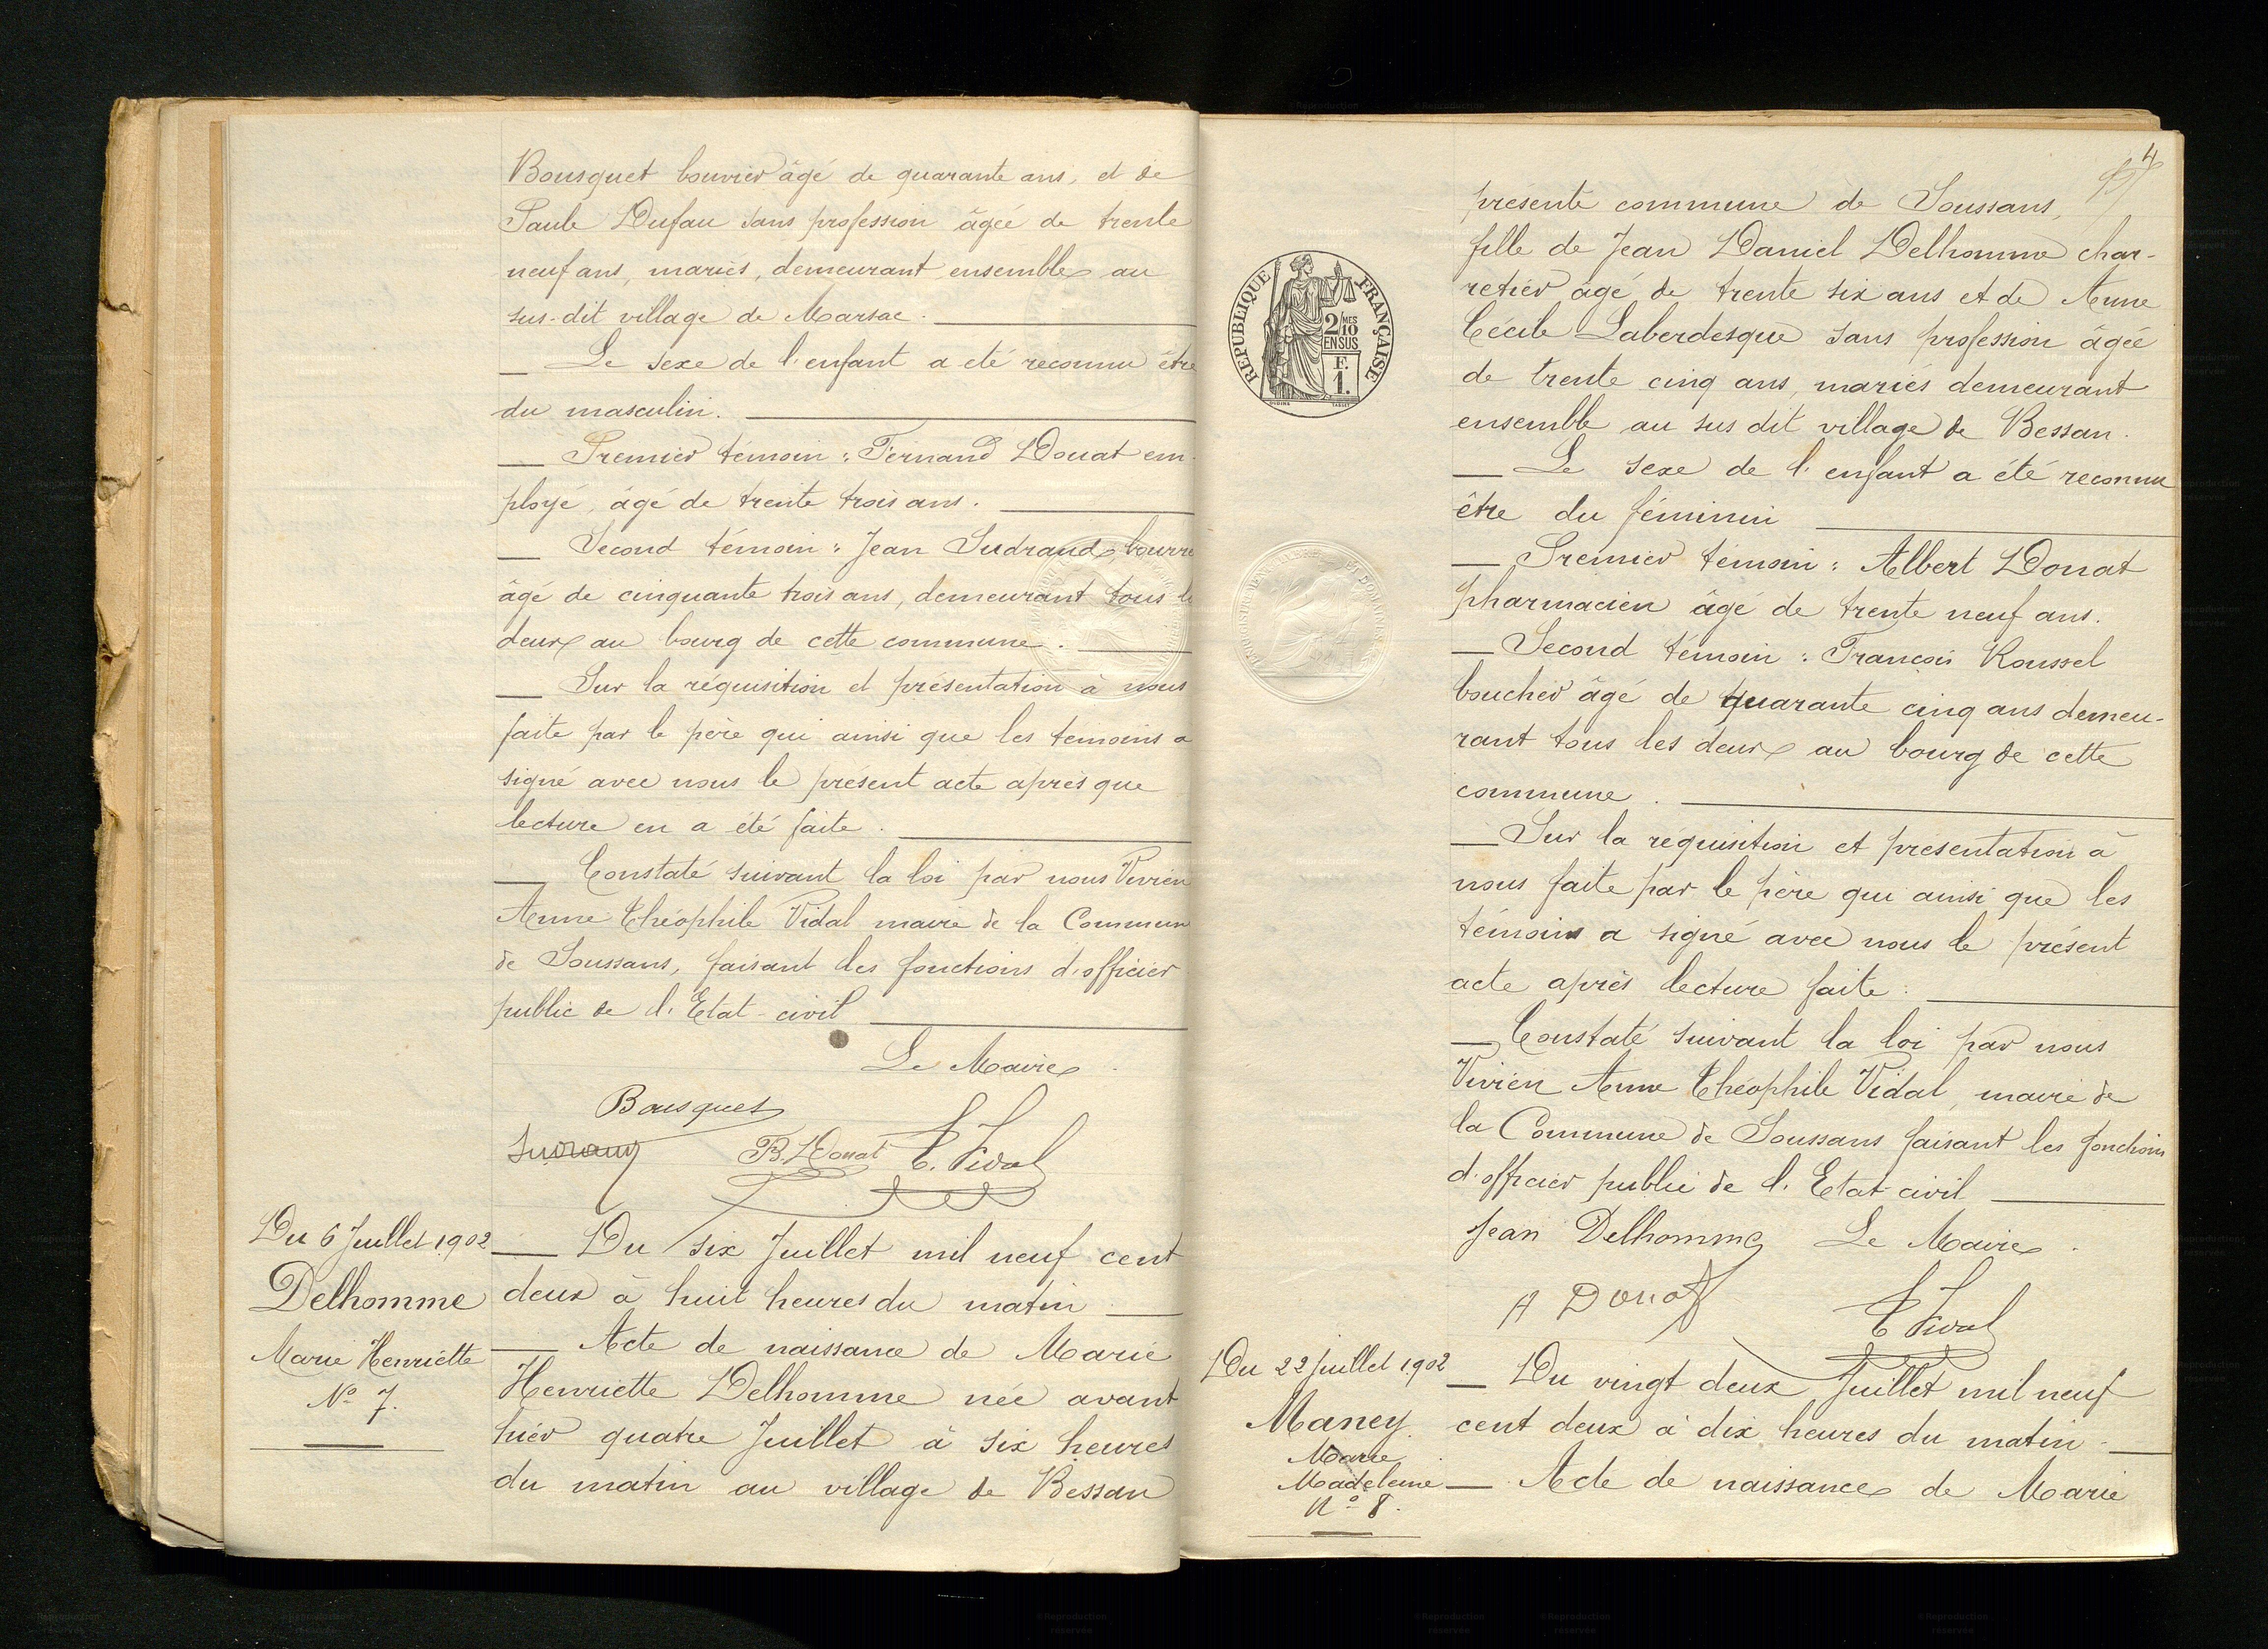 Bousquet bouvier âgé de quarante ans, et de
Paule Dufau sans profession âgée de trente
neuf ans, mariés, demeurant ensemble au
sus-dit village de Marsac.
Le sexe de l'enfant a eté reconnu être
du masculin.
Premier témoin : Fernand Douat em-
ployé, âgé de trente trois ans.
Second témoin : Jean Sudraud, bourre
âgé de cinquante trois ans, demeurant tous le
deux au bourg de cette commune.
Sur la réquisition et présentation à nous
faite par le père qui ainsi que les temoins a
signé avec nous le présent acte après que
lecture en a été faite.
Constaté suivant la loi par nous Vivien
Anne Théophile Vidal maire de la Commun
de Soussans, faisant les fonctions d'officier
public de l'Etat-civil
Le Maire
Bousquet
Sudraud F. Douat T. Vidal
Du 6 Juillet 1902
Delhomme
Marie Henriette
No 7.
Du six Juillet mil neuf cent
deux à huit heures du matin
Acte de naissance de Marie
Henriette Delhomme née avant
hier quatre Juillet à six heures
du matin au village de Bessan
4
présente commune de Soussans,
fille de Jean Daniel Delhomme char-
retier âgé de trente six ans et de Anne
Cécile Laberdesque sans profession âgée
de trente cinq ans, mariés demeurant
ensemble au sus dit village de Bessan.
Le sexe de l'enfant a été reconnu
être du féminin
Premier témoin : Albert Douat
pharmacien âgé de trente neuf ans.
Second témoin : François Roussel
boucher âgé de quarante cinq ans demeu-
rant tous les deux au bourg de cette
commune.
Sur la requisition et présentation à
nous faite par le père qui ainsi que les
témoins a signé avec nous le présent
acte après lecture faite.
Constaté suivant la loi par nous
Vivien Anne Théophile Vidal, maire de
la Commune de Soussans faisant les fonctions
d'officier public de l'Etat civil
Jean Delhomme Le Maire
A Douat T Vidal
Du 22 Juillet 1902
Maney
Marie
Madeleine
No 8.
Du vingt deux Juillet mil neuf
cent deux à dix heures du matin
Acte de naissance de Marie
REPUBLIQUE FRANÇAISE
2/10 MES
EN SUS
F.
1.